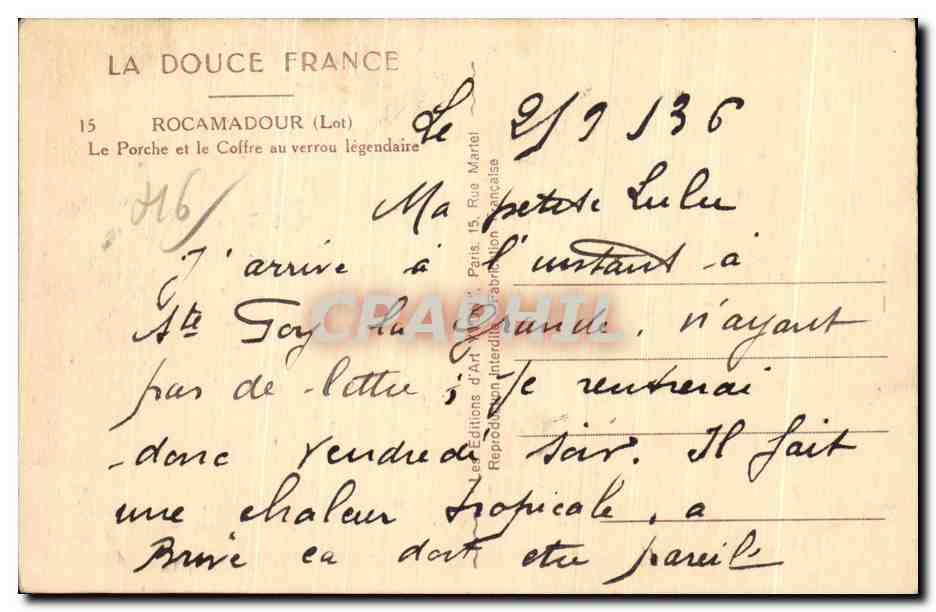 LA DOUCE FRANCE
15 ROCAMADOUR (Lot)
Le Porche et le Coffre au verrou légendaire
Le 2/9/36
Ma petite Lulu
J'arrive à l'instant à
Ste Foy la Grande, n'ayant
pas de lettre; je rentrerai
donc vendredi soir. Il fait
une chaleur tropicale, a
Brive ca doit etre pareil
Les Editions d'Art Paris. 15, Rue Martel
Reproduction Interdite Fabrication Française
CPARPHIL